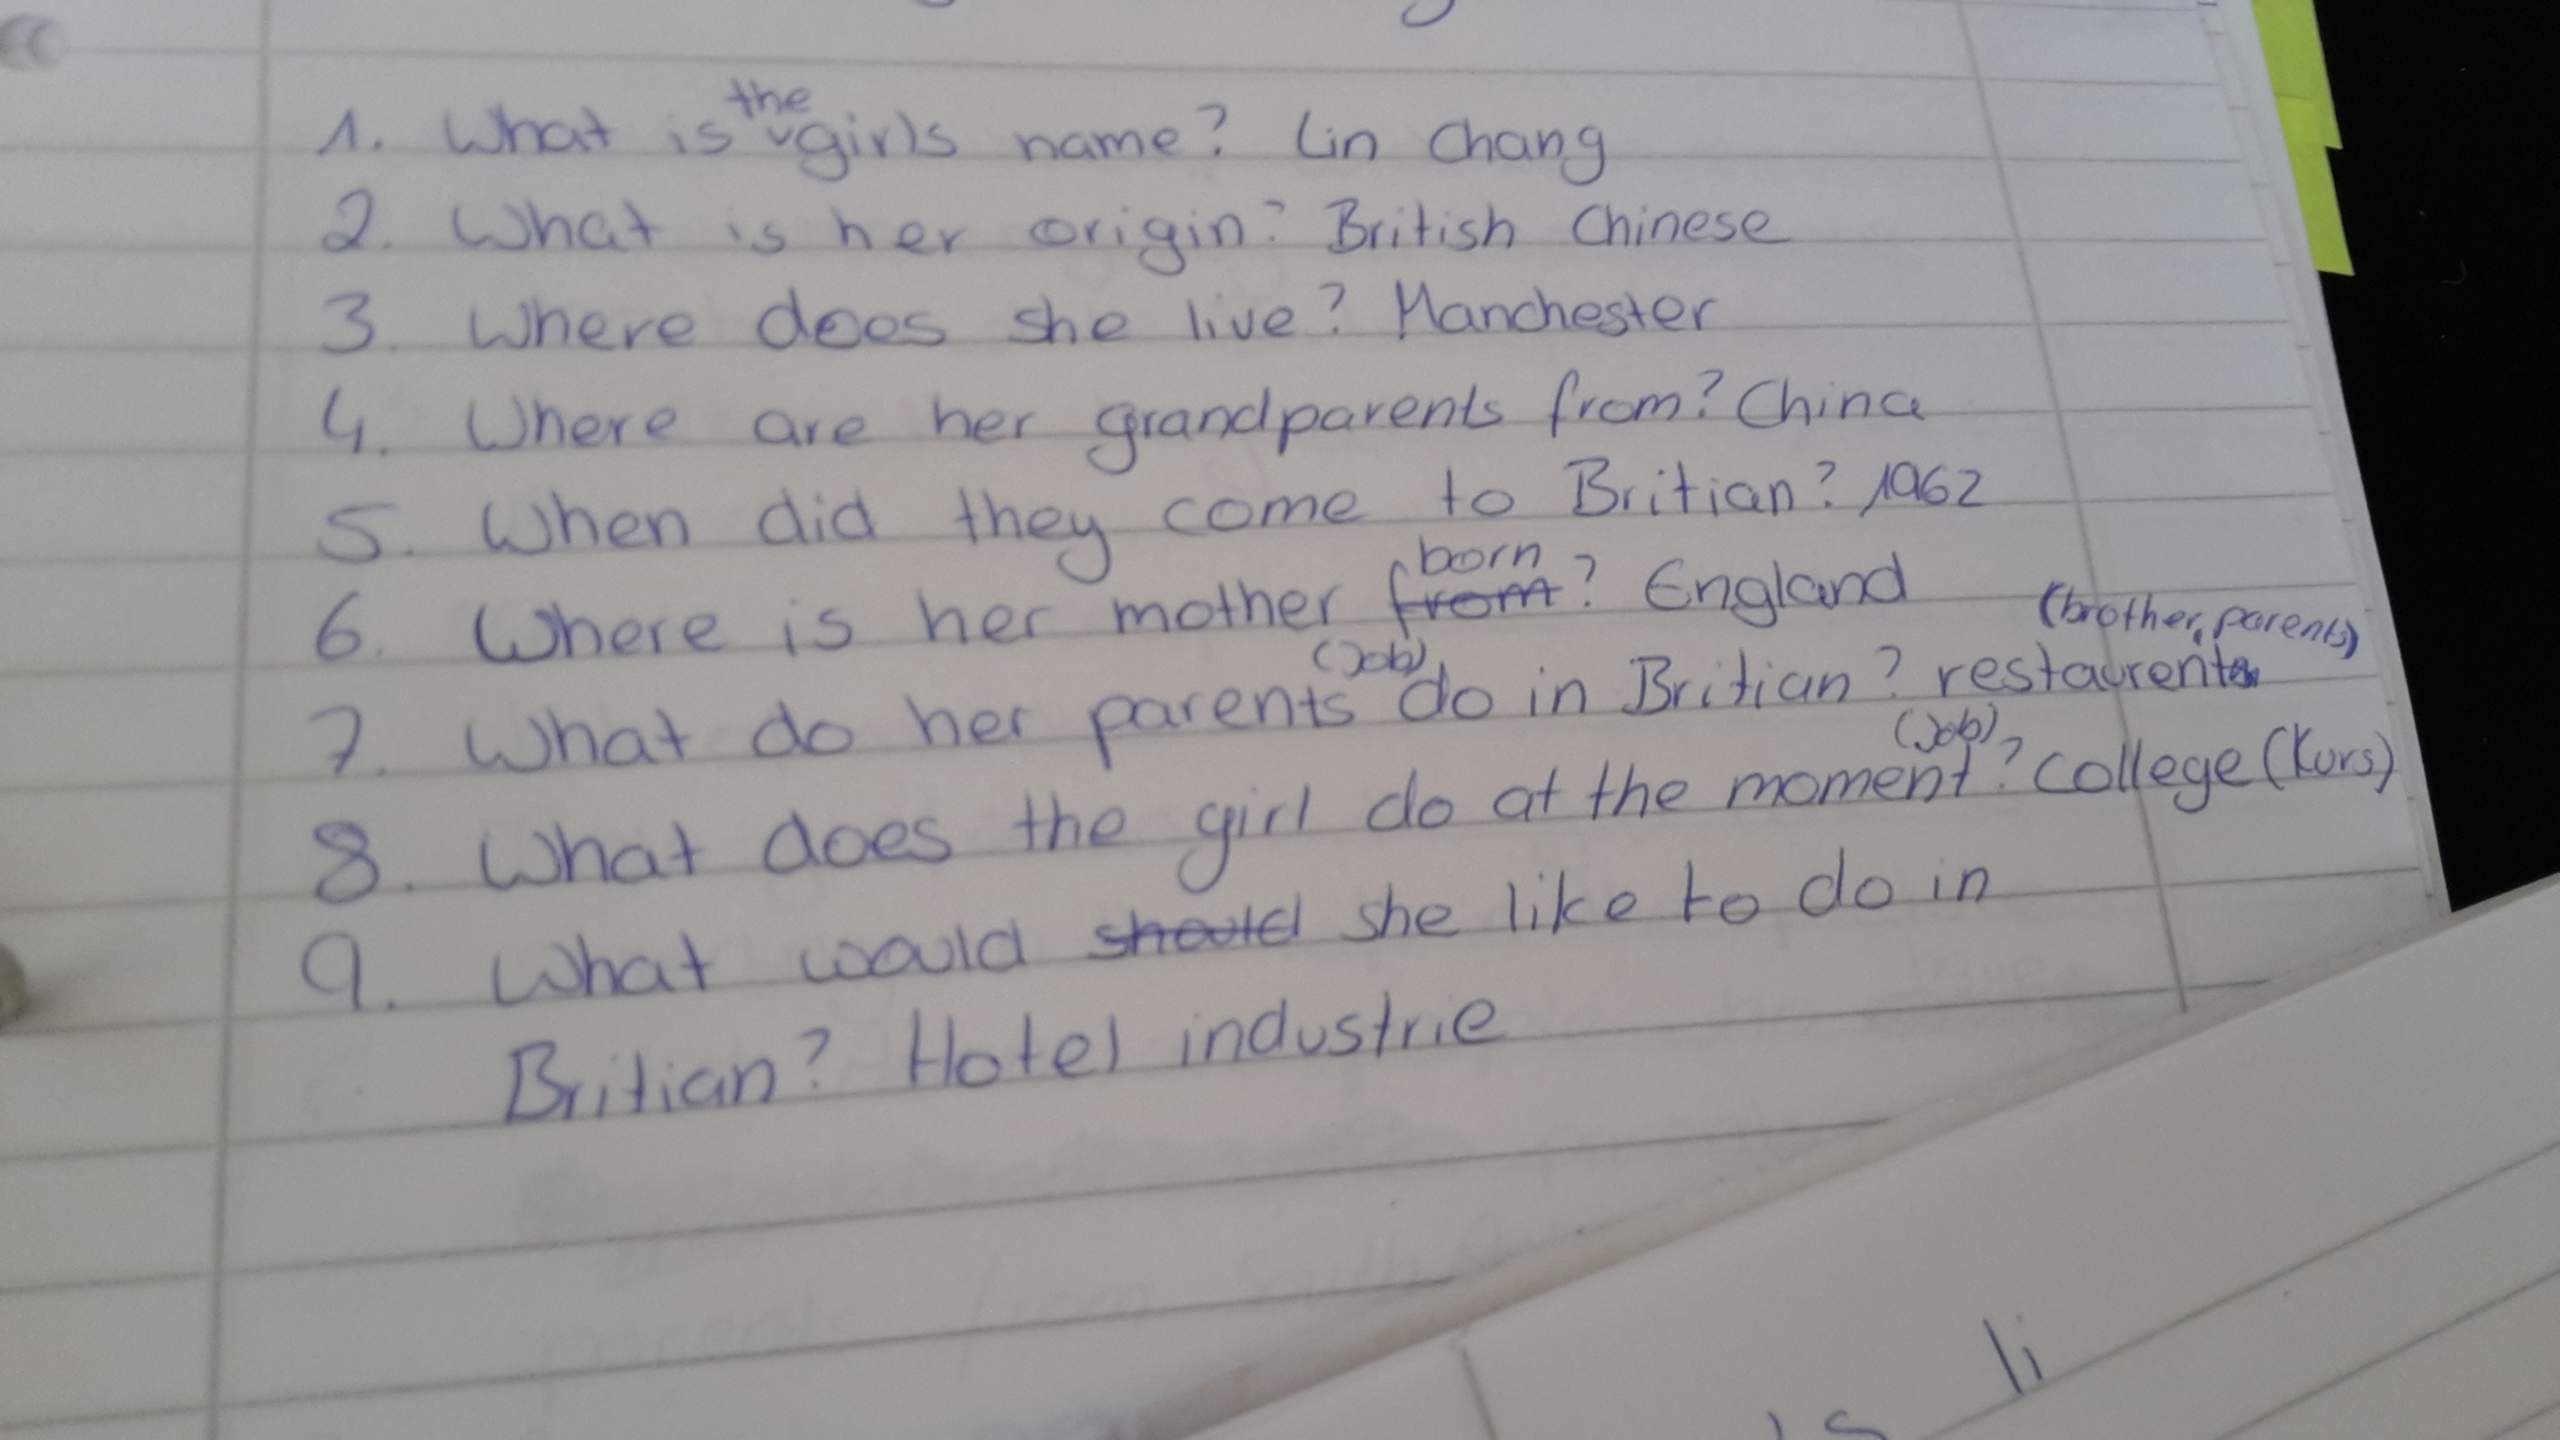 1. What is the girls name? Lin Chang
2. What is her origin? British Chinese
3. Where does she live? Manchester
4. Where are her grandparents from? China
5. When did they come to Britian? 1962
6. Where is her mother from born? England
7. What do her parents (Job) do in Britian? restaurent (brother, parents)
8. What does the girl do at the moment (Job)? College (Kurs)
9. What would should she like to do in
Britian? Hotel industrie
li
is